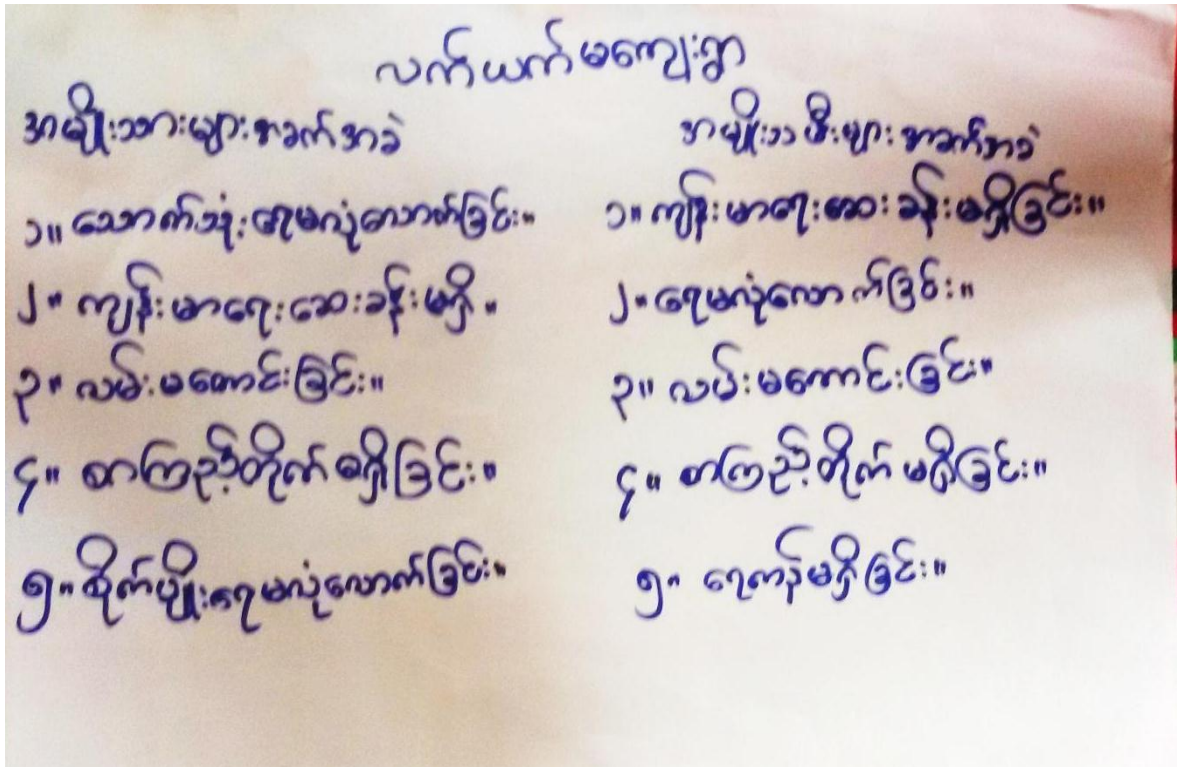 လက်ယက်မကျေးရွာ
အမျိုးသားများအခက်အခဲ
၁။ သောက်သုံးရေမလုံလောက်ခြင်း။
၂။ ကျန်းမာရေးဆေးခန်းမရှိ။
၃။ လမ်းမကောင်းခြင်း။
၄။ စာကြည့်တိုက်မရှိခြင်း။
၅။ စိုက်ပျိုးရေမလုံလောက်ခြင်း။
အမျိုးသမီးများအခက်အခဲ
၁။ ကျန်းမာရေးဆေးခန်းမရှိခြင်း။
၂။ ရေမလုံလောက်ခြင်း။
၃။ လမ်းမကောင်းခြင်း။
၄။ စာကြည့်တိုက်မရှိခြင်း။
၅။ ရေကန်မရှိခြင်း။